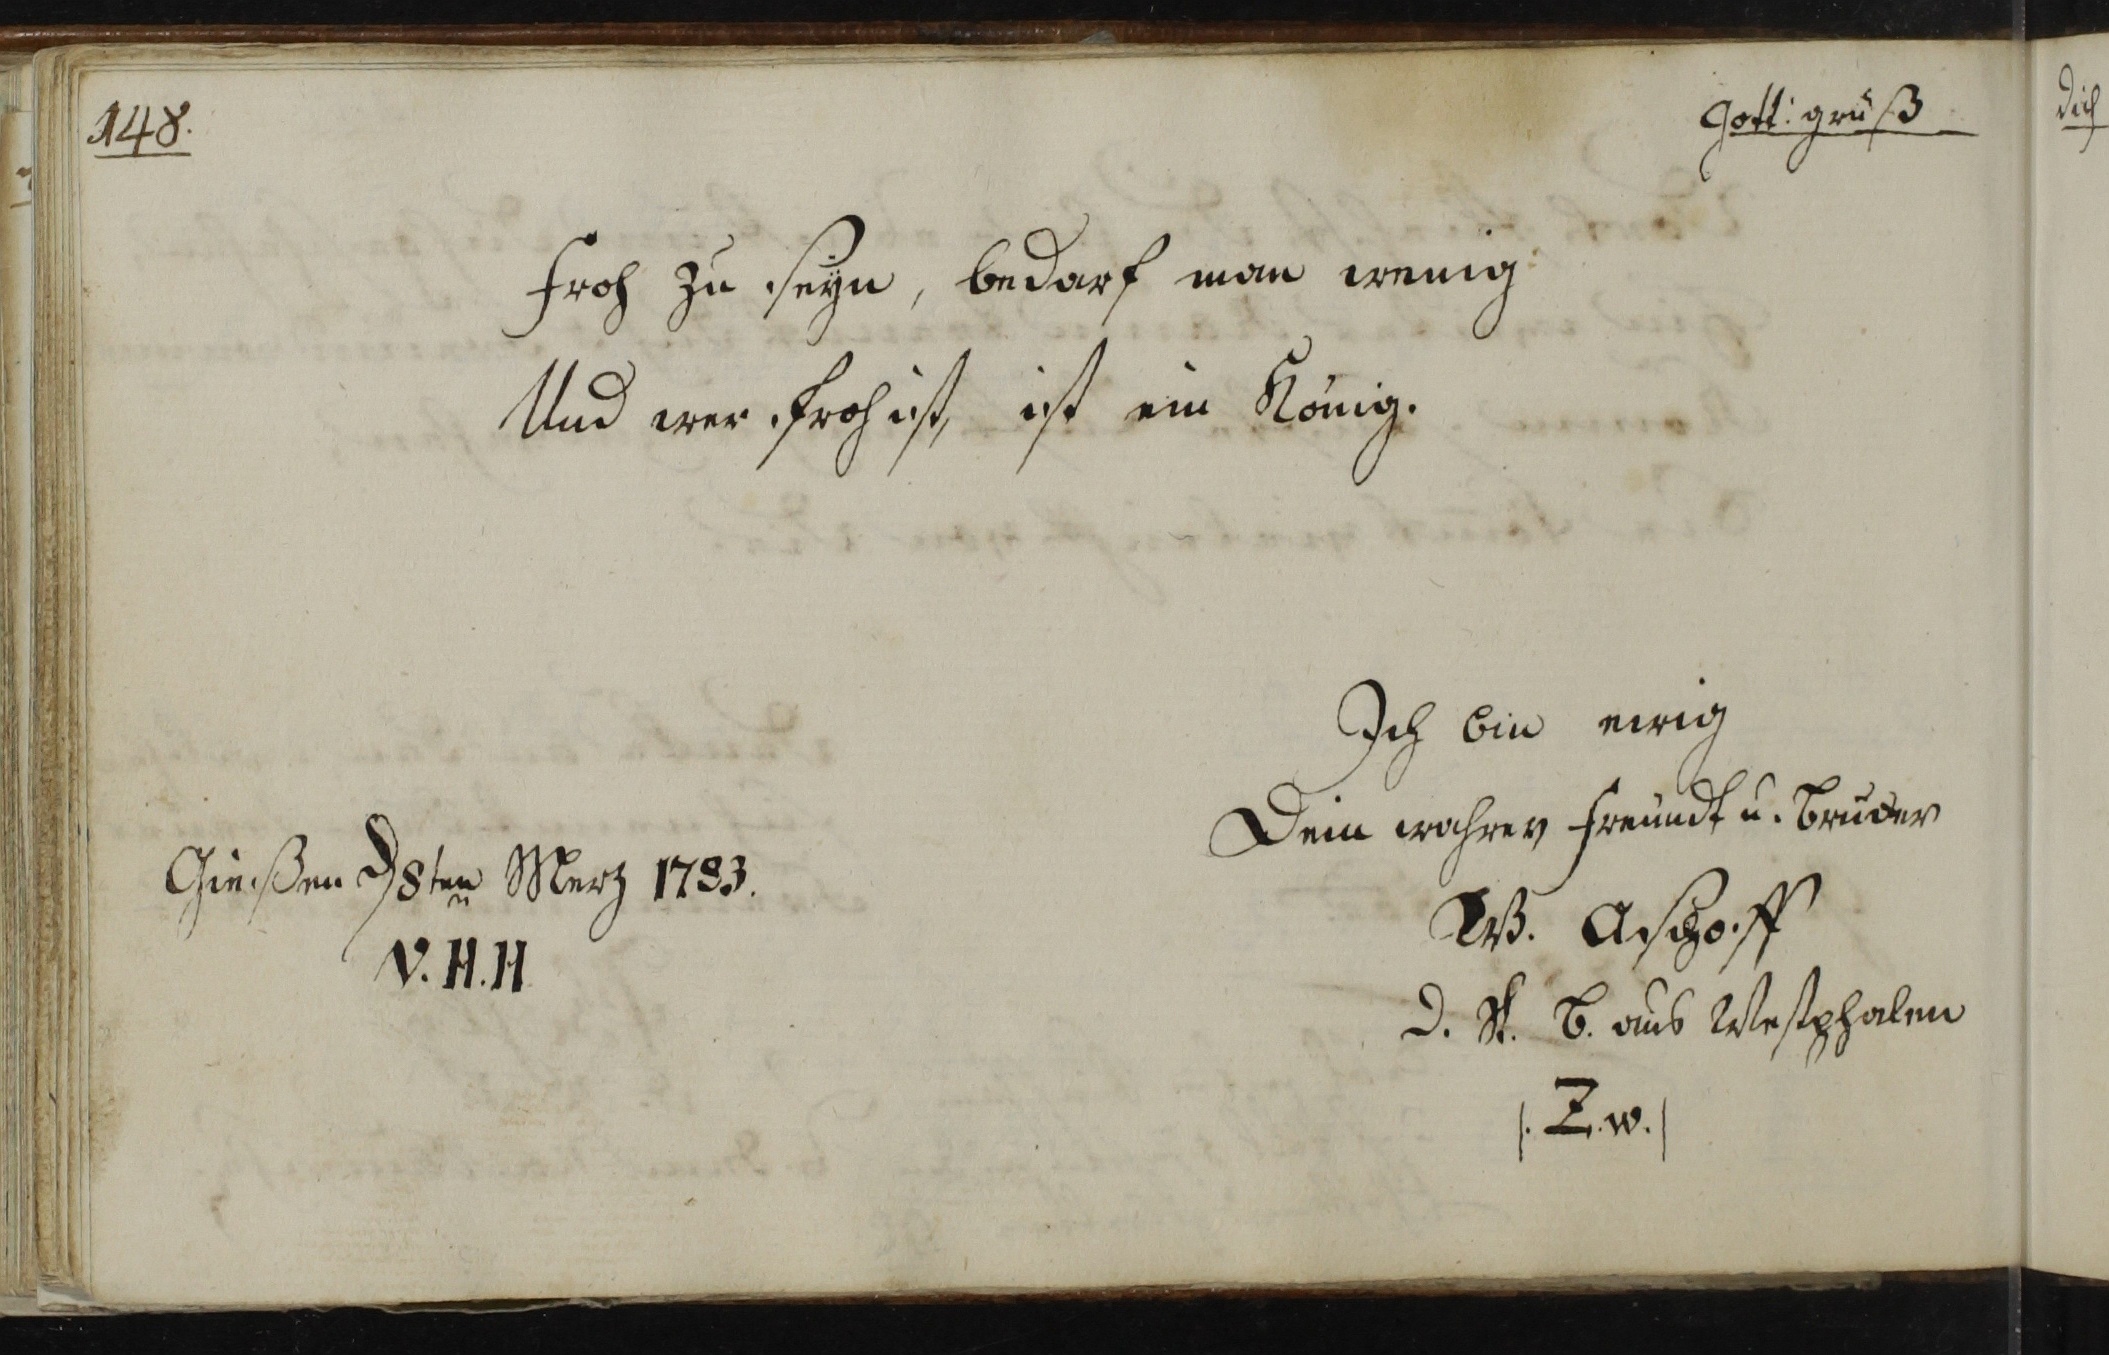 148.
Gott: grüß
Dich
Froh zu seyn, bedarf man wenig
Und wer froh ist, ist ein König.
Ich bin ewig
Dein wahrer Freundt u. Bruder
Aschoff
D. R. B. aus Westphalen
|. Z.w. |
Gießen D 8ten Merz 1783.
V. H. H